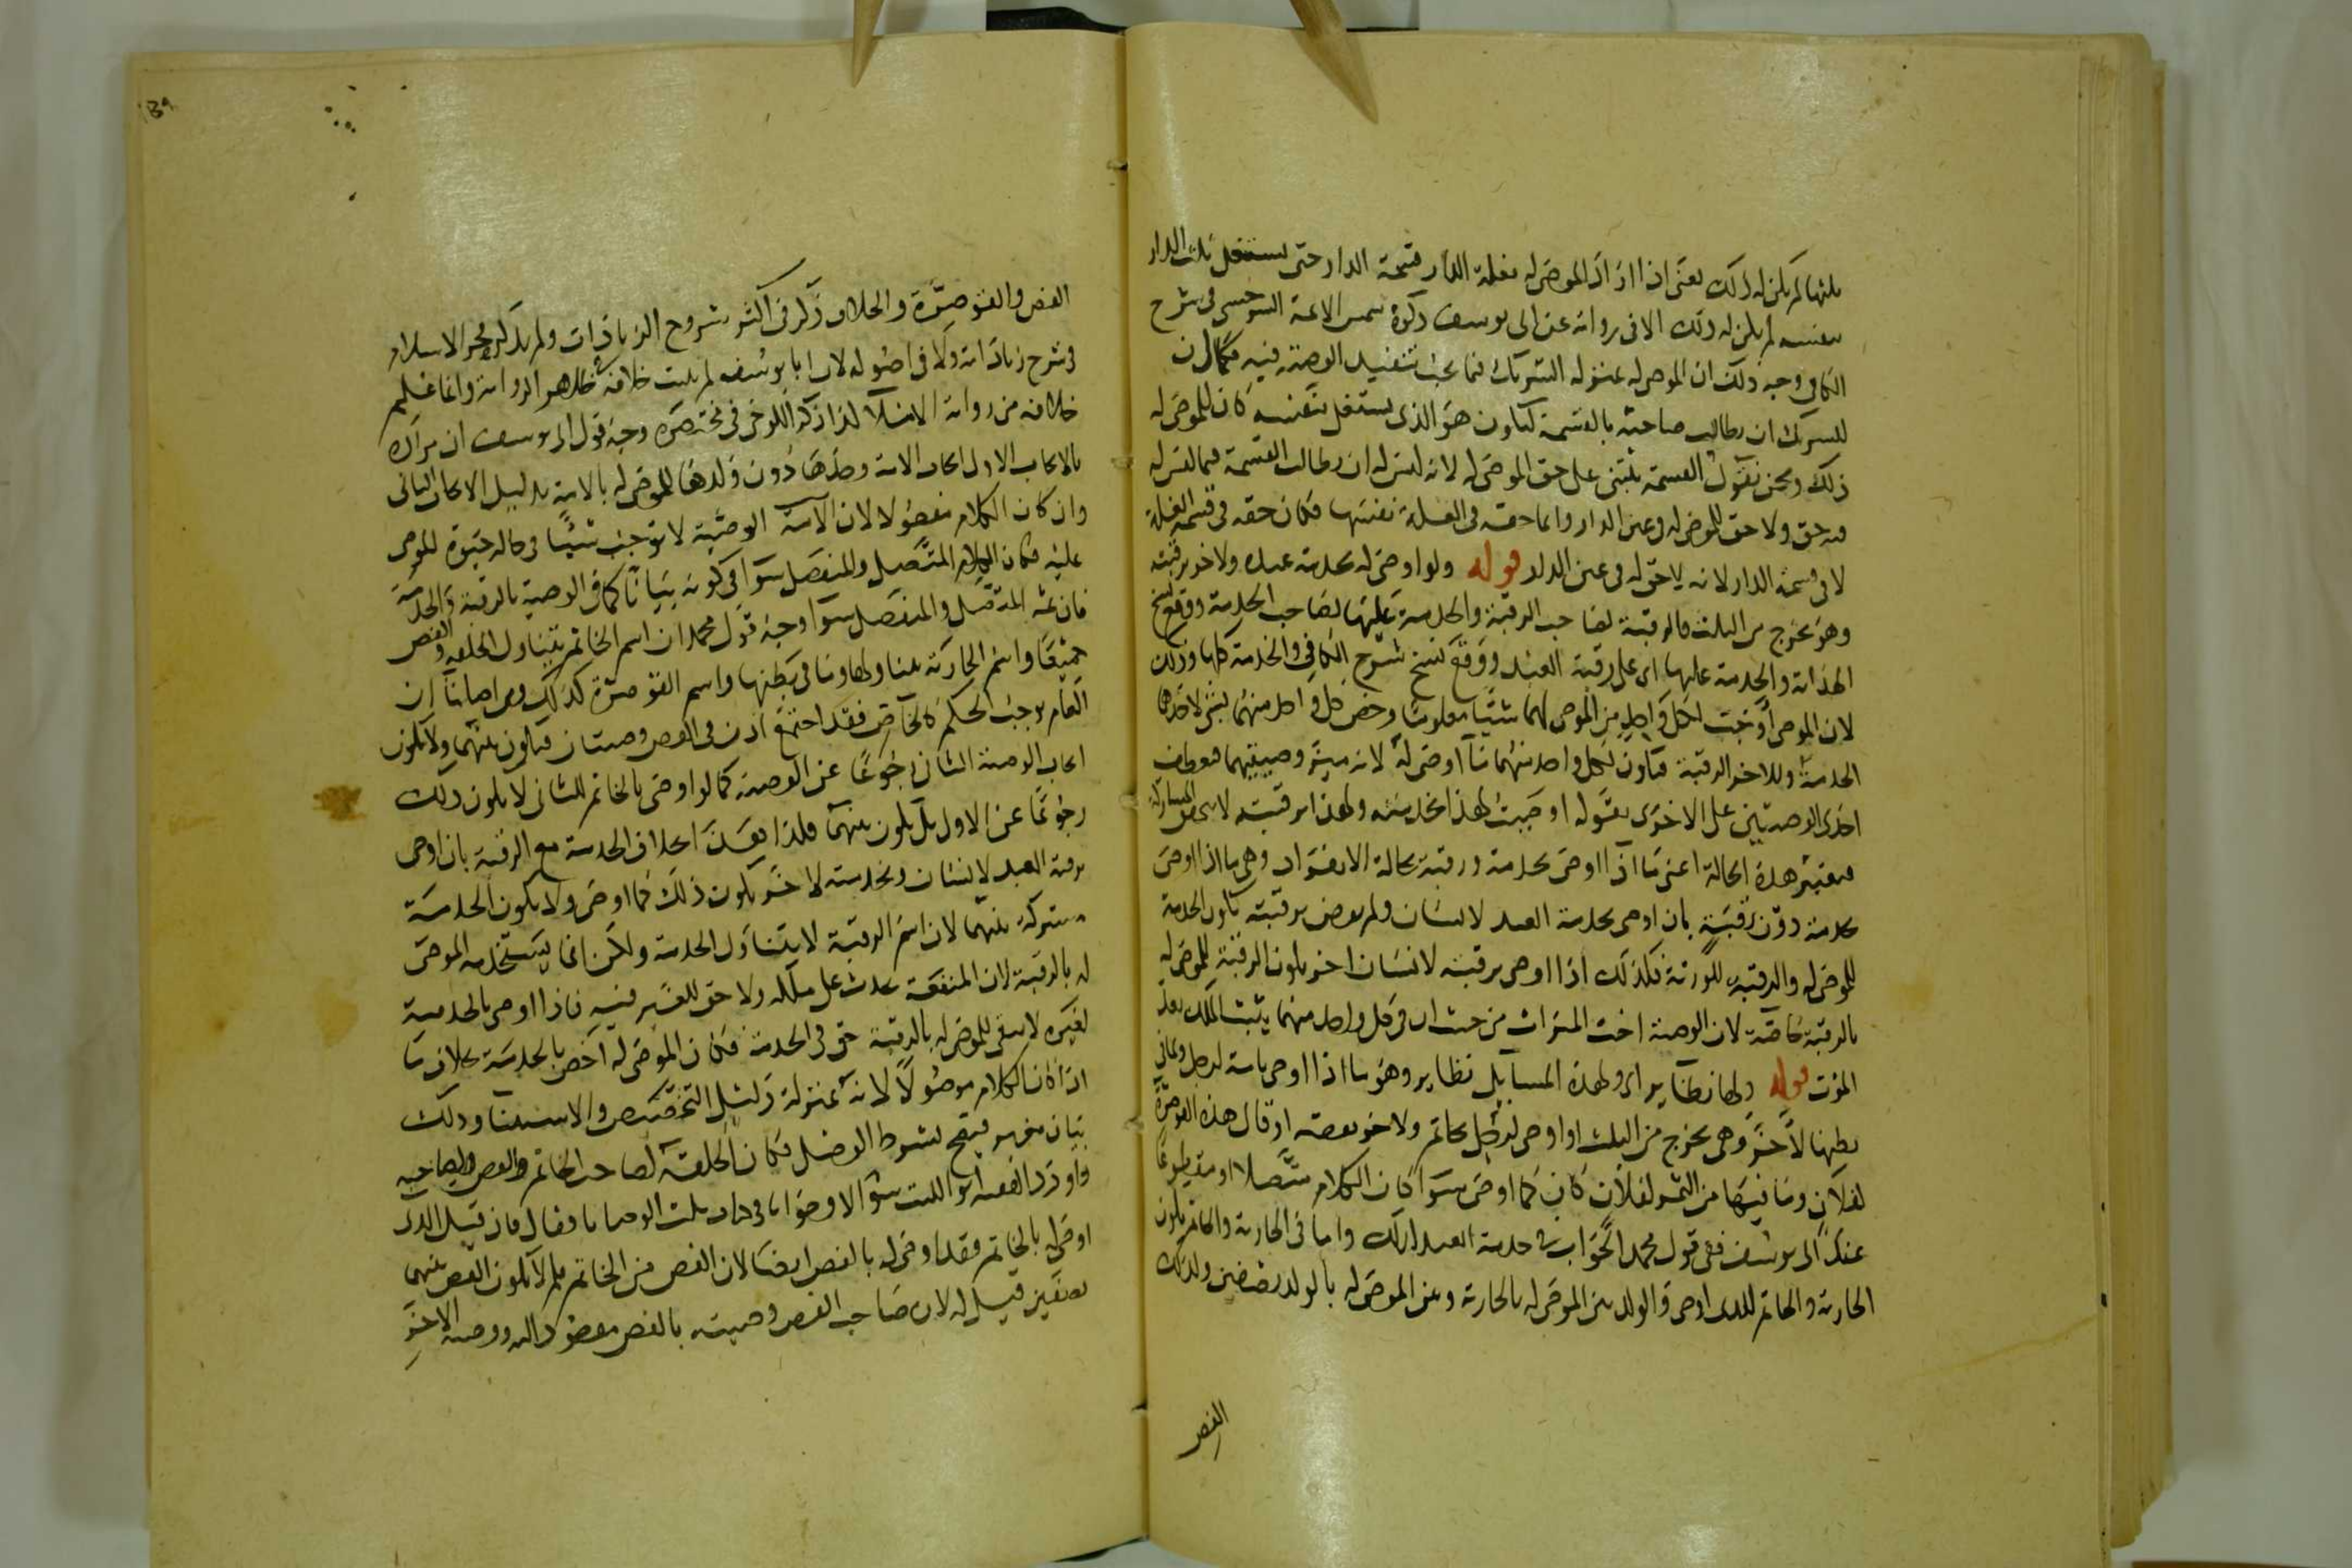 لم يكن له ذلك يعني اذا اراد الموصى له بغلة الدار قسمة الدار حتى يستغل ثلث الدار
بنفسه لم يكن له ذلك الا في رواية عن ابي يوسف ذكره شمس الائمة السرخسي في شرح
الكافي وجه ذلك ان الموصى له بمنزلة الشريك فيما يجب تنفيذ الوصية فيه فكما ان
للشريك ان يطالب صاحبه بالقسمة ليكون هو الذي يستغل بنفسه كان للموصى له
ذلك ونحن نقول القسمة تبتنى على حق الموصى له لانه ليس له ان يطالب القسمة فيما ليس له
فيه حق ولا حق للموصى له في عين الدار وانما حقه في الغلة نفسها فكان حقه في قسمة الغلة
لا في قسمة الدار لانه لا حق له في عين الدار قوله ولو اوصى له بخدمة عبده ولاخر برقبته
وهو يخرج من الثلث فالرقبة لصاحب الرقبة والخدمة عليها لصاحب الخدمة ووقع نسخ
الهداية والخدمة عليها اي على رقبة العبد ووقع نسخ شرح الكافي والخدمة كلها وذلك
لان الموصي اوجب لكل واحد من الموصى لهما شيئا معلوما وخص كل واحد منهما بشي لاحدهما
الخدمة وللاخر الرقبة فيكون لكل واحد منهما ما اوصى له لانه ميز وصيتهما فعطف
احدى الوصيتين على الاخرى بقوله اوصيت لهذا بخدمته ولهذا برقبته
فيعتبر هذه الحالة اعني ما اذا اوصى بخدمة ورقبة بحالة الانفراد وهي ما اذا اوصى
بخدمة دون رقبة بان اوصى بخدمة العبد لانسان ولم يوص برقبته تكون الخدمة
للموصى له والرقبة للورثة فكذلك اذا اوصى برقبته لانسان اخر يكون الرقبة للموصى له
بالرقبة خاصة لان الوصية اخت الميراث من حيث ان في كل واحد منهما يثبت الملك بعد
الموت قوله ولها نظاير اي ولهذه المسايل نظاير وهو ما اذا اوصى بامة لرجل وبما في
بطنها لاخر وهي يخرج من الثلث او اوصى لرجل بخاتم ولاخر بفصه او قال هذه القوصرة
لفلان وما فيها من التمر لفلان كان كما اوصى سوا كان الكلام متصلا او مقطوعا
عند ابي يوسف ففي قول محمد الجواب في خدمة العبد كذلك واما في الجارية والخاتم يكون
الجارية والخاتم للذي اوصى والولد بين الموصى له بالجارية وبين الموصى له بالولد نصفين وكذلك
الفص
الفص والقوصرة والخلاف ذكر في اكثر شروح الزيادات ولم يذكر فخر الاسلام
في شرح زياداته ولا في اصوله لان ابا يوسف لم يثبت خلافه في ظاهر الرواية وانما علم
خلافه من رواية الاملا كذا ذكر الكرخي في مختصره وجه قول ابي يوسف ان مراده
بالايجاب الاول ايجاب الامة وحدها دون ولدها للموصى له بالامة بدليل الايجاب الثاني
وان كان الكلام مفصولا لان الوصية لا توجب شيئا في حالة حيوة الموصي
عليه فكان الكلام المتصل والمنفصل سوا في كونه بيانا كما في الوصية بالرقبة والخدمة
فان ثمة المتصل والمنفصل سوا وجه قول محمد ان اسم الخاتم يتناول الحلقة والفص
جميعا واسم الجارية يتناولها وما في بطنها واسم القوصرة كذلك ومن اصلنا ان
العام يوجب الحكم كالخاص فقد اجتمع اذن في الفص وصيتان فيكون بينهما ولا يكون
ايجاب الوصية الثاني رجوعا عن الوصية كما لو اوصى بالخاتم للثاني لا يكون ذلك
رجوعا عن الاول بل يكون بينهما فكذا بخلاف الخدمة مع الرقبة بان اوصى
برقبة العبد لانسان وبخدمته لاخر يكون ذلك كما اوصى ولا يكون الخدمة
مشتركة بينهما لان اسم الرقبة لا يتناول الخدمة ولكن انما يستخدمه الموصى
له بالرقبة لان المنفعة تحدث على ملكه ولا حق للغير فيه فاذا اوصى بالخدمة
لغيره لا يبقى للموصى له بالرقبة حق في الخدمة فكان الموصى له اخص بالخدمة بخلاف ما
اذا كان الكلام موصولا لانه بمنزلة دليل التخصيص والاستثنا وذلك
بيان مغير فيصح بشرط الوصل فكان الحلقة لصاحب الخاتم والفص لصاحبه
واورد الفقيه ابو الليث سؤالا وجوابا في وقال فان قيل الذي
اوصى له بالخاتم فقد اوصى له بالفص ايضا لان الفص من الخاتم فلم لا يكون الفص بينهما
نصفين قيل له لان صاحب الفص وصيته بالفص مقصود اليه ووصية الاخر